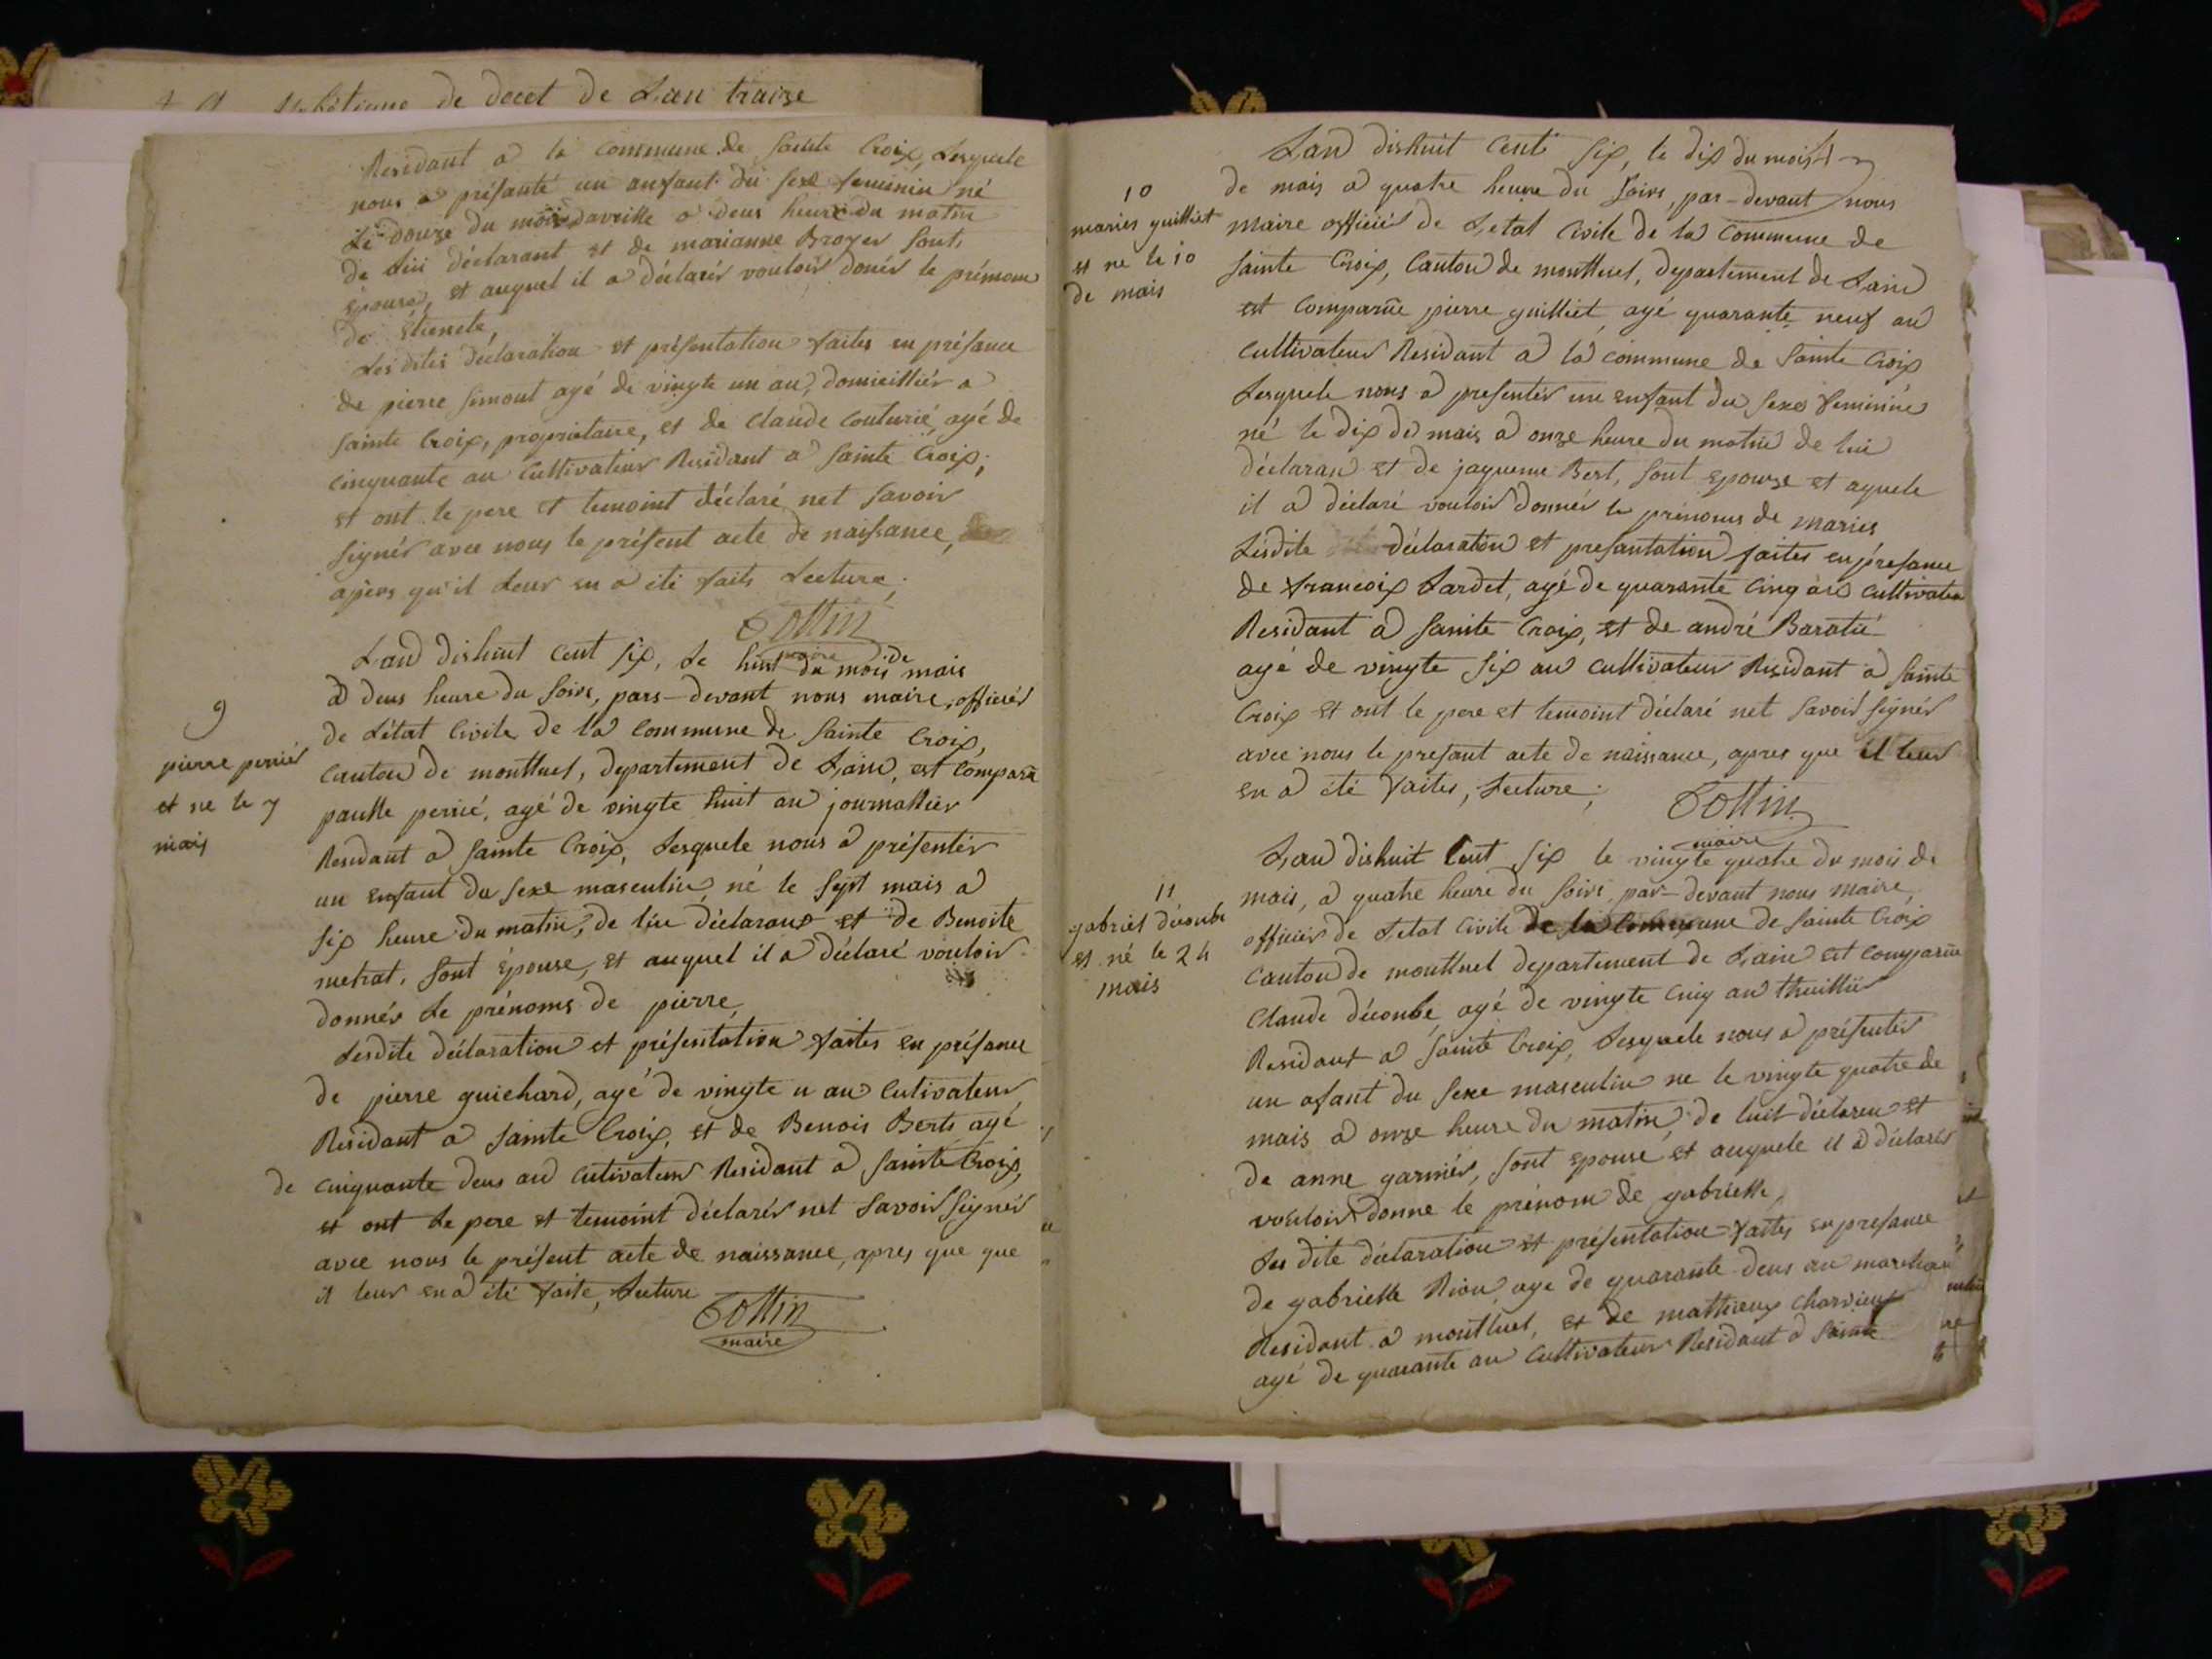 de decet de Lan traize
Residant a la Commune de Sainte Croix, Lesquele
nous a présanté un anfant du sexe feminin né
Le douze du mois davrille a deus heure du matin
de Lui déclarant et de marianne Broyer sont
épouse, et auquel il a déclarér vouloir donér le prémom
de Étienete,
Les dites déclaration et présentation faites en présance
de pierre simont agé de vingte un an, domicilliér a
sainte Croix, propriétaire, et de Claude Couturié, agé de
cinquante an Cultivateur Residant a Sainte Croix,
et ont le pere et temoint déclaré net Savoir
signér avec nous le présent acte de naissance,
apres qu'il Leur en a été faits Lecture;
Tottin
maire
Lan dishuit Cent six, Le huit du mois de mais
a deus heure du soirs, pars-devant nous maire, officiér
de L'état Civile de la Commune de Sainte Croix,
Canton de montluel, departement de Lain, est Comparu
paulle perrié, agé de vingte huit an journallier
Residant a Sainte Croix, Lesquele nous a présentér
un enfant du sexe masculin, né le sept mais a
six heure du matin, de lui déclarant et de Benoite
metrat, sont épouse, et auquel il a déclaré vouloir
donnér Le prénoms de pierre,
Lesdite déclaration et présentation faites en présance
de pierre guichard, agé de vingte u an Cutivateur
Residant a Sainte Croix, et de Benois Berts agé
de cinquante deus an cutivateur Residant a Sainte Croix,
et ont Le pere et temoint déclarér net Savoir Signér
avec nous le présent acte de naissance, apres que que
il leur en a été faite, Lecture
Tottin
maire
9
pierre perriér
et ne le 7
mais
Lan dishuit Cent six, le dix du mois
de mais a quatre heure du Soirs, par-devant nous
maire officié de Letat Civile de la Commune de
Sainte Croix, Canton de montluel, departement de Lain
est Comparue pierre guilliet, agé quarante neuf an
Cultivateur Residant a la Commune de Sainte Croix
Lesquele nous a presentér un enfant du sexe feminine
né le dix de mais a onze heure du matin de lui
déclaran et de jaqueme Bert, sont epouse et aquele
il a déclaré vouloir donnér le prénoms de maries
Lesdite déclaration et presantation faites en presance
de francoix Lardet, agé de quarante Cinq an Cultivateu
Residant a Sainte Croix, et de andré Baratié
agé de vingte six an Cultivateur Residant a Sainte
Croix et ont le pere et temoint déclaré net Savoir signér
avec nous le presant acte de naissance, apres que il leur
en a été faites, Lecture;
Tottin
maire
10
maries guilliet
et ne le 10
de mais
Lan dishuit Cent six le vingte quatre du mois de
mais, a quatre heure du Soirs, par-devant nous maire,
officiér de Letat Civile de la Commune de Sainte Croix
Canton de montluel departement de Lain est Comparue
Claude décombe agé de vingte cinq an thuillié
Residant a Sainte Croix, Lesquele nous a présentér
un afant du sexe masculin ne le vingte quatre de
mais a onze heure du matin, de luit déclaren et
de anne garniér, sont epouse et auquele il a déclarér
vouloir donne le prénom de gabrielle,
Les dite déclaration et présentation faites en presance
de gabrielle Riou, age de quarante deus an marchan
Residant a montluel, et de mathieux Charvieux
agé de quarante an Cultivateur Residant a Sainte
11
gabriel décombe
est né le 24
mais